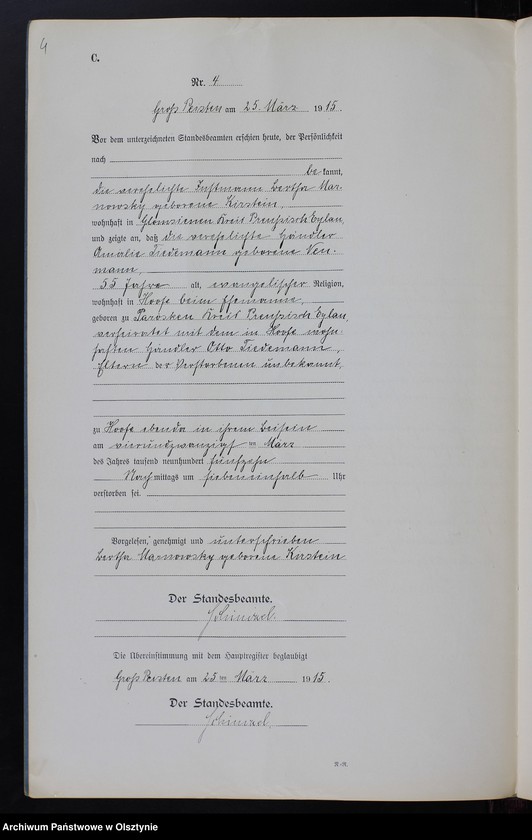 4
C.
Nr. 4
Groß Peisten am 25. März 1915.
Vor dem unterzeichneten Standesbeamten erschien heute, der Persönlichkeit
nach
be kannt,
die verehelichte Instmann Bertha Mar-
nowsky geborene Kirstein,
wohnhaft in Glomsienen Kreis Preußisch Eylau,
und zeigte an, daß die verehelichte Händler
Amalie Tiedemann geborene Neu-
mann,
55 Jahre alt, evangelischer Religion,
wohnhaft in Hoofe beim Ehemanne,
geboren zu Parösken Kreis Preußisch Eylau,
verheiratet mit dem in Hoofe wohn-
haften Händler Otto Tiedemann,
Eltern der Verstorbenen unbekannt,
zu Hoofe ebenda in ihrem Beisein
am vierundzwanzigsten März
des Jahres tausend neunhundert fünfzehn
Nach mittags um siebeneinhalb Uhr
verstorben sei.
Vorgelesen, genehmigt und unterschrieben
Bertha Marnowsky geborene Kirstein
Der Standesbeamte.
Schimzel
Die Übereinstimmung mit dem Hauptregister beglaubigt
Groß Peisten am 25 ten März 1915.
Der Standesbeamte.
Schimzel
R.-R.
Archiwum Państwowe w Olsztynie